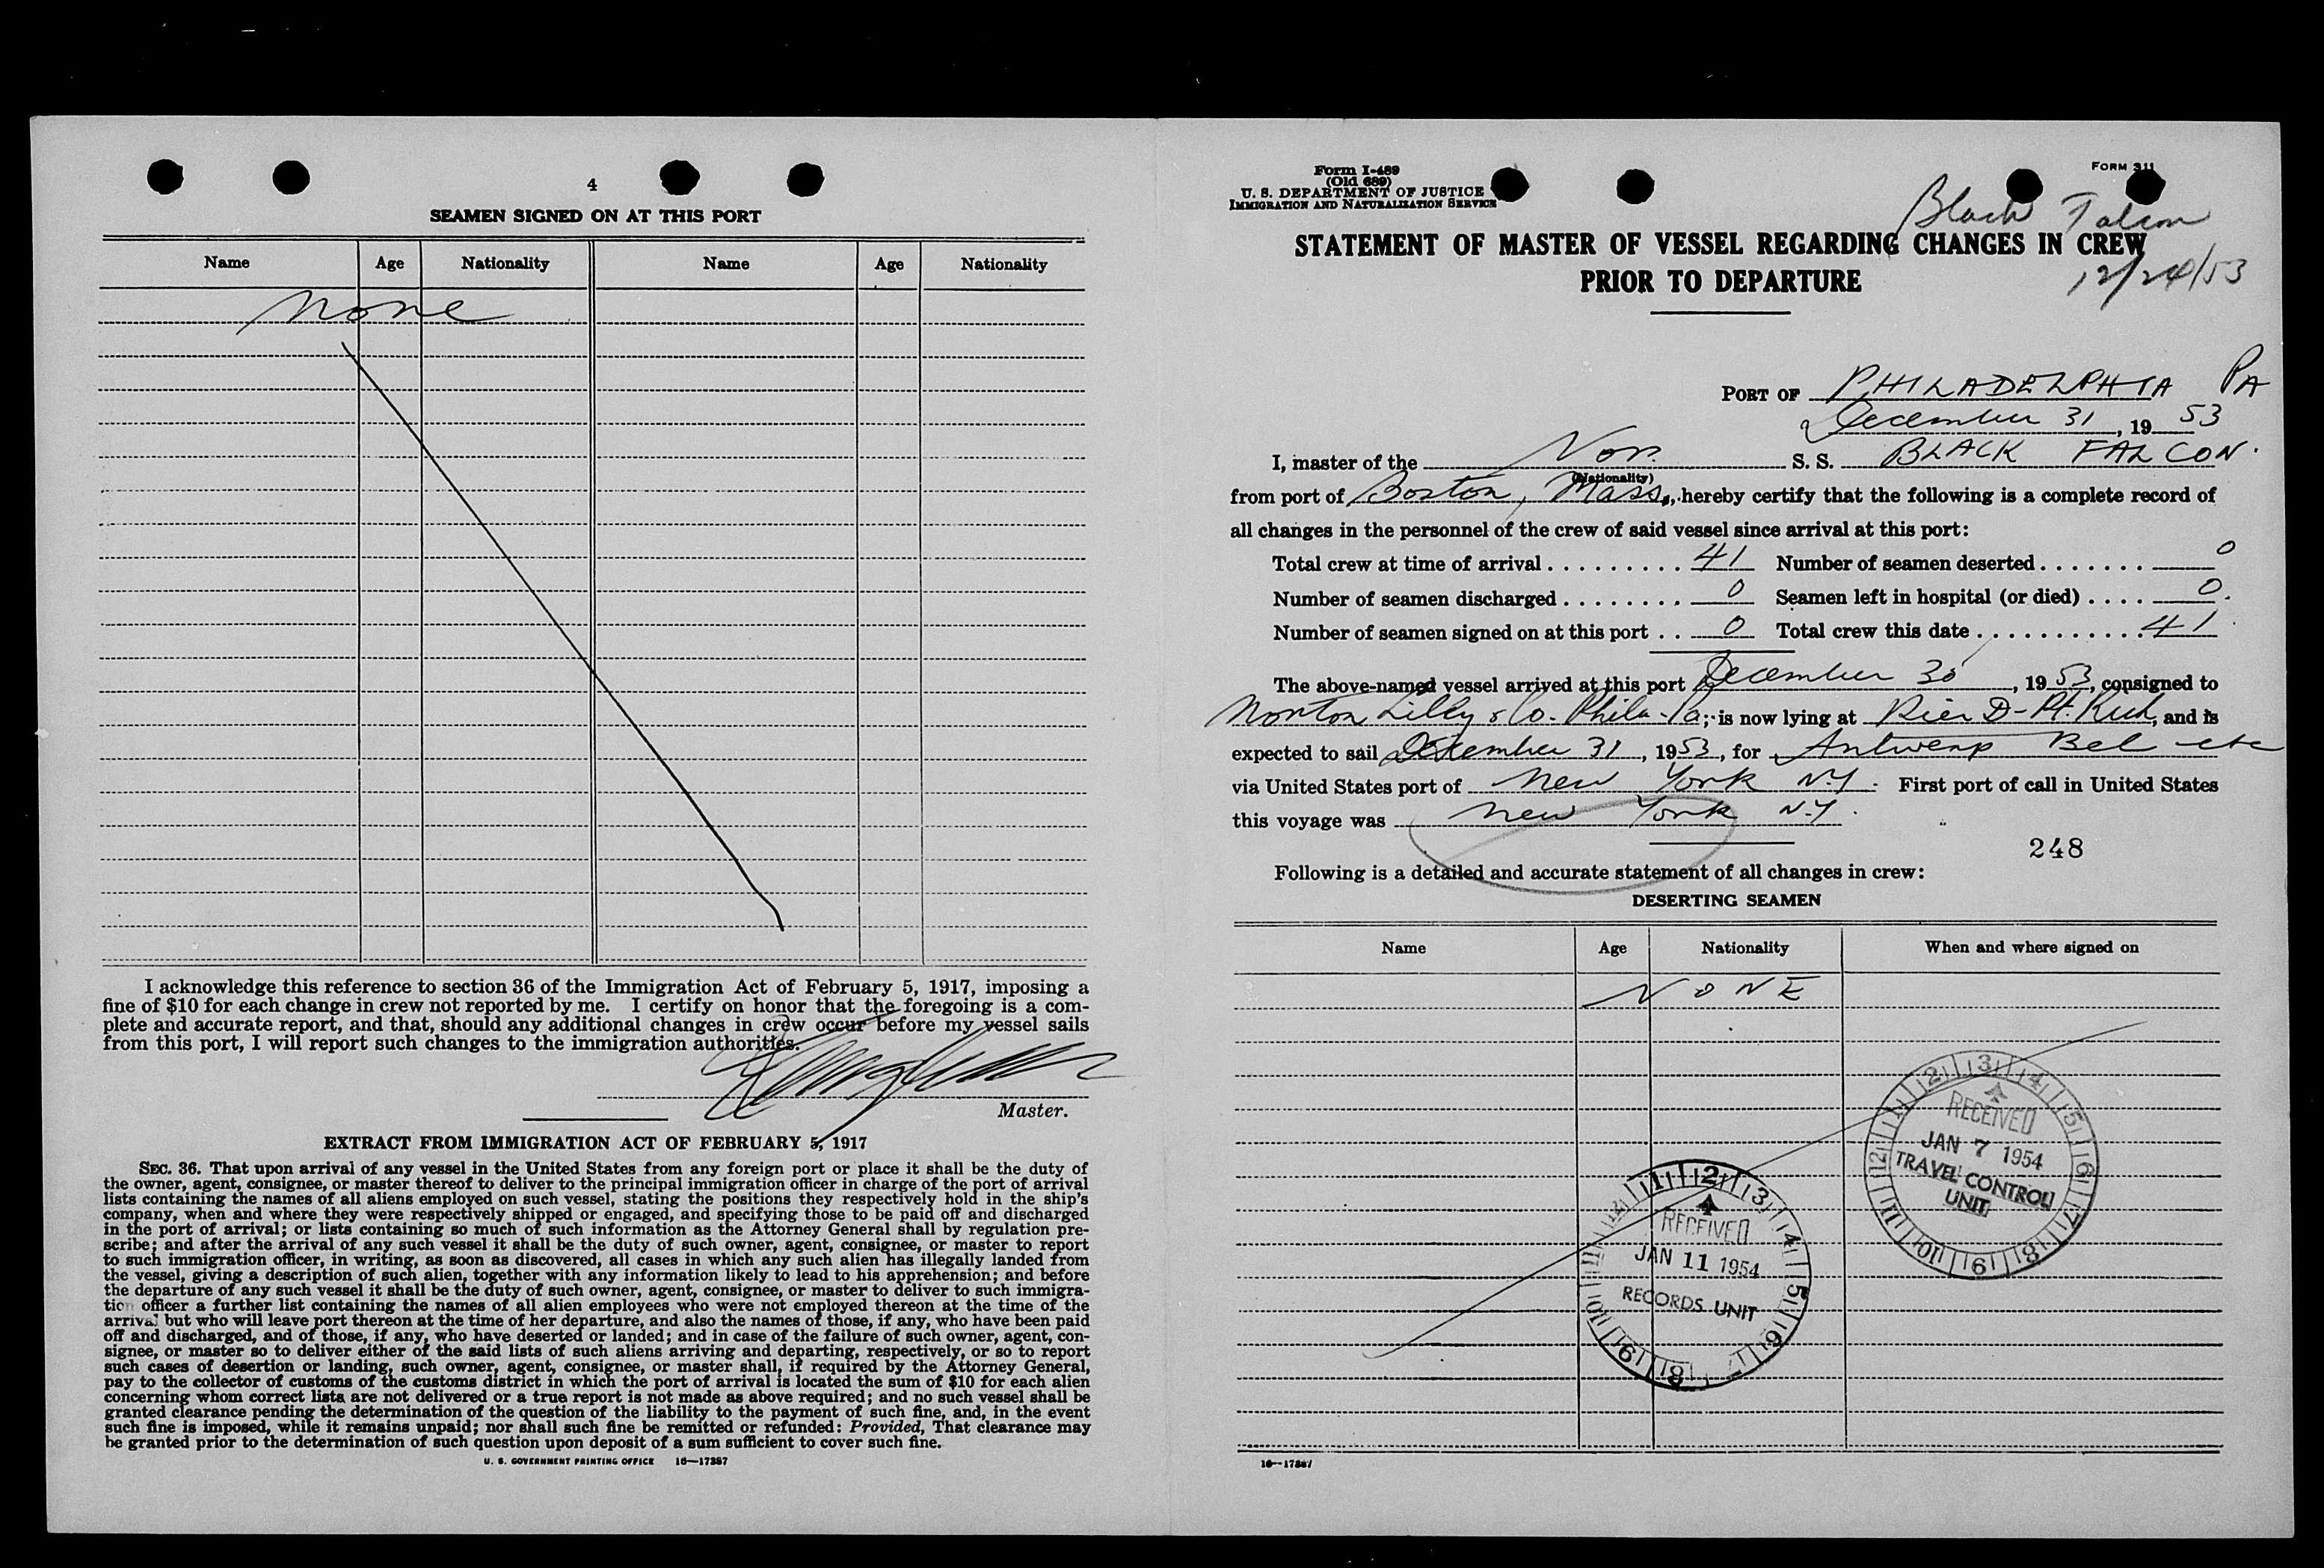 4
SEAMEN SIGNED ON AT THIS PORT
Name Age Nationality Name Age Nationality
None
I acknowledge this reference to section 36 of the Immigration Act of February 5, 1917, imposing a
fine of $10 for each change in crew not reported by me. I certify on honor that the foregoing is a com-
plete and accurate report, and that, should any additional changes in crew occur before my vessel sails
from this port, I will report such changes to the immigration authorities.
Master.
EXTRACT FROM IMMIGRATION ACT OF FEBRUARY 5, 1917
SEC. 36. That upon arrival of any vessel in the United States from any foreign port or place it shall be the duty of
the owner, agent, consignee, or master thereof to deliver to the principal immigration officer in charge of the port of arrival
lists containing the names of all aliens employed on such vessel, stating the positions they respectively hold in the ship's
company, when and where they were respectively shipped or engaged, and specifying those to be paid off and discharged
in the port of arrival; or lists containing so much of such information as the Attorney General shall by regulation pre-
scribe; and after the arrival of any such vessel it shall be the duty of such owner, agent, consignee, or master to report
to such immigration officer, in writing, as soon as discovered, all cases in which any such alien has illegally landed from
the vessel, giving a description of such alien, together with any information likely to lead to his apprehension; and before
the departure of any such vessel it shall be the duty of such owner, agent, consignee, or master to deliver to such immigra-
tion officer a further list containing the names of all alien employees who were not employed thereon at the time of the
arrival but who will leave port thereon at the time of her departure, and also the names of those, if any, who have been paid
off and discharged, and of those, if any, who have deserted or landed; and in case of the failure of such owner, agent, con-
signee, or master so to deliver either of the said lists of such aliens arriving and departing, respectively, or so to report
such cases of desertion or landing, such owner, agent, consignee, or master shall, if required by the Attorney General,
pay to the collector of customs of the customs district in which the port of arrival is located the sum of $10 for each alien
concerning whom correct lists are not delivered or a true report is not made as above required; and no such vessel shall be
granted clearance pending the determination of the question of the liability to the payment of such fine, and, in the event
such fine is imposed, while it remains unpaid; nor shall such fine be remitted or refunded: Provided, That clearance may
be granted prior to the determination of such question upon deposit of a sum sufficient to cover such fine.
U. S. GOVERNMENT PRINTING OFFICE 16—17387
Form I-489
(Old 689)
U. S. DEPARTMENT OF JUSTICE
IMMIGRATION AND NATURALIZATION SERVICE
FORM 311
Black Falcon
12/24/53
STATEMENT OF MASTER OF VESSEL REGARDING CHANGES IN CREW
PRIOR TO DEPARTURE
PORT OF PHILADELPHIA PA
December 31, 1953
I, master of the Nor. S. S. BLACK FALCON.
(Nationality)
from port of Boston, Mass., hereby certify that the following is a complete record of
all changes in the personnel of the crew of said vessel since arrival at this port:
Total crew at time of arrival . . . . . . . . . 41 Number of seamen deserted . . . . . . . 0
Number of seamen discharged . . . . . . . . 0 Seamen left in hospital (or died) . . . . 0.
Number of seamen signed on at this port . . 0 Total crew this date . . . . . . . . . . . . 41
The above-named vessel arrived at this port December 30, 1953, consigned to
Norton Lilly & Co. Phila - Pa; is now lying at Pier D - Pt. Rich, and is
expected to sail December 31, 1953, for Antwerp Bel etc
via United States port of New York N.Y. First port of call in United States
this voyage was New York N.Y.
248
Following is a detailed and accurate statement of all changes in crew:
DESERTING SEAMEN
Name Age Nationality When and where signed on
NONE
RECEIVED
JAN 7 1954
TRAVEL CONTROL
UNIT
RECEIVED
JAN 11 1954
RECORDS UNIT
16—17387